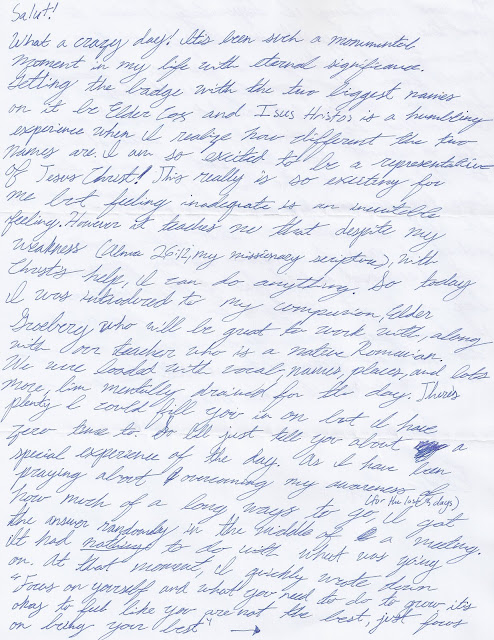 Salut!
What a crazy day! It's been such a monumental
moment in my life with eternal significance.
Getting the badge with the two biggest names
on it be Elder Cox and Isus Hristos is a humbling
experience when I realize how different the two
names are. I am so excited to be a representative
of Jesus Christ! This really is so exciting for
me but feeling inadequate is an inevitable
feeling. However it teaches me that despite my
weakness (Alma 26:12, my missionary scripture), with
Christ's help, I can do anything. So today
I was introduced to my companion, Elder
Groberg who will be great to work with, along
with our teacher who is a native Romanian.
We were loaded with vocab, names, places, and lots
more, I'm mentally drained for the day. There's
plenty I could fill you in on but I have
zero time to. So I'll just tell you about a
special experience of the day. As I have been
praying about overcoming my awareness of
(for the last ½ days)
how much of a long ways to go, I got
the answer randomly in the middle of a meeting.
It had nothing to do with what was going
on. At that moment, I quickly wrote down
"Focus on yourself and what you need to do to grow, it's
okay to feel like you are not the best, just focus
on being your best" →